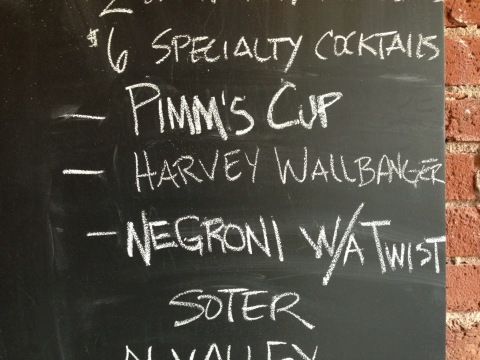 $6 SPECIALTY COCKTAILS
- PIMM'S CUP
- HARVEY WALLBANGER
- NEGRONI W/A TWIST
SOTER
N VALLEY